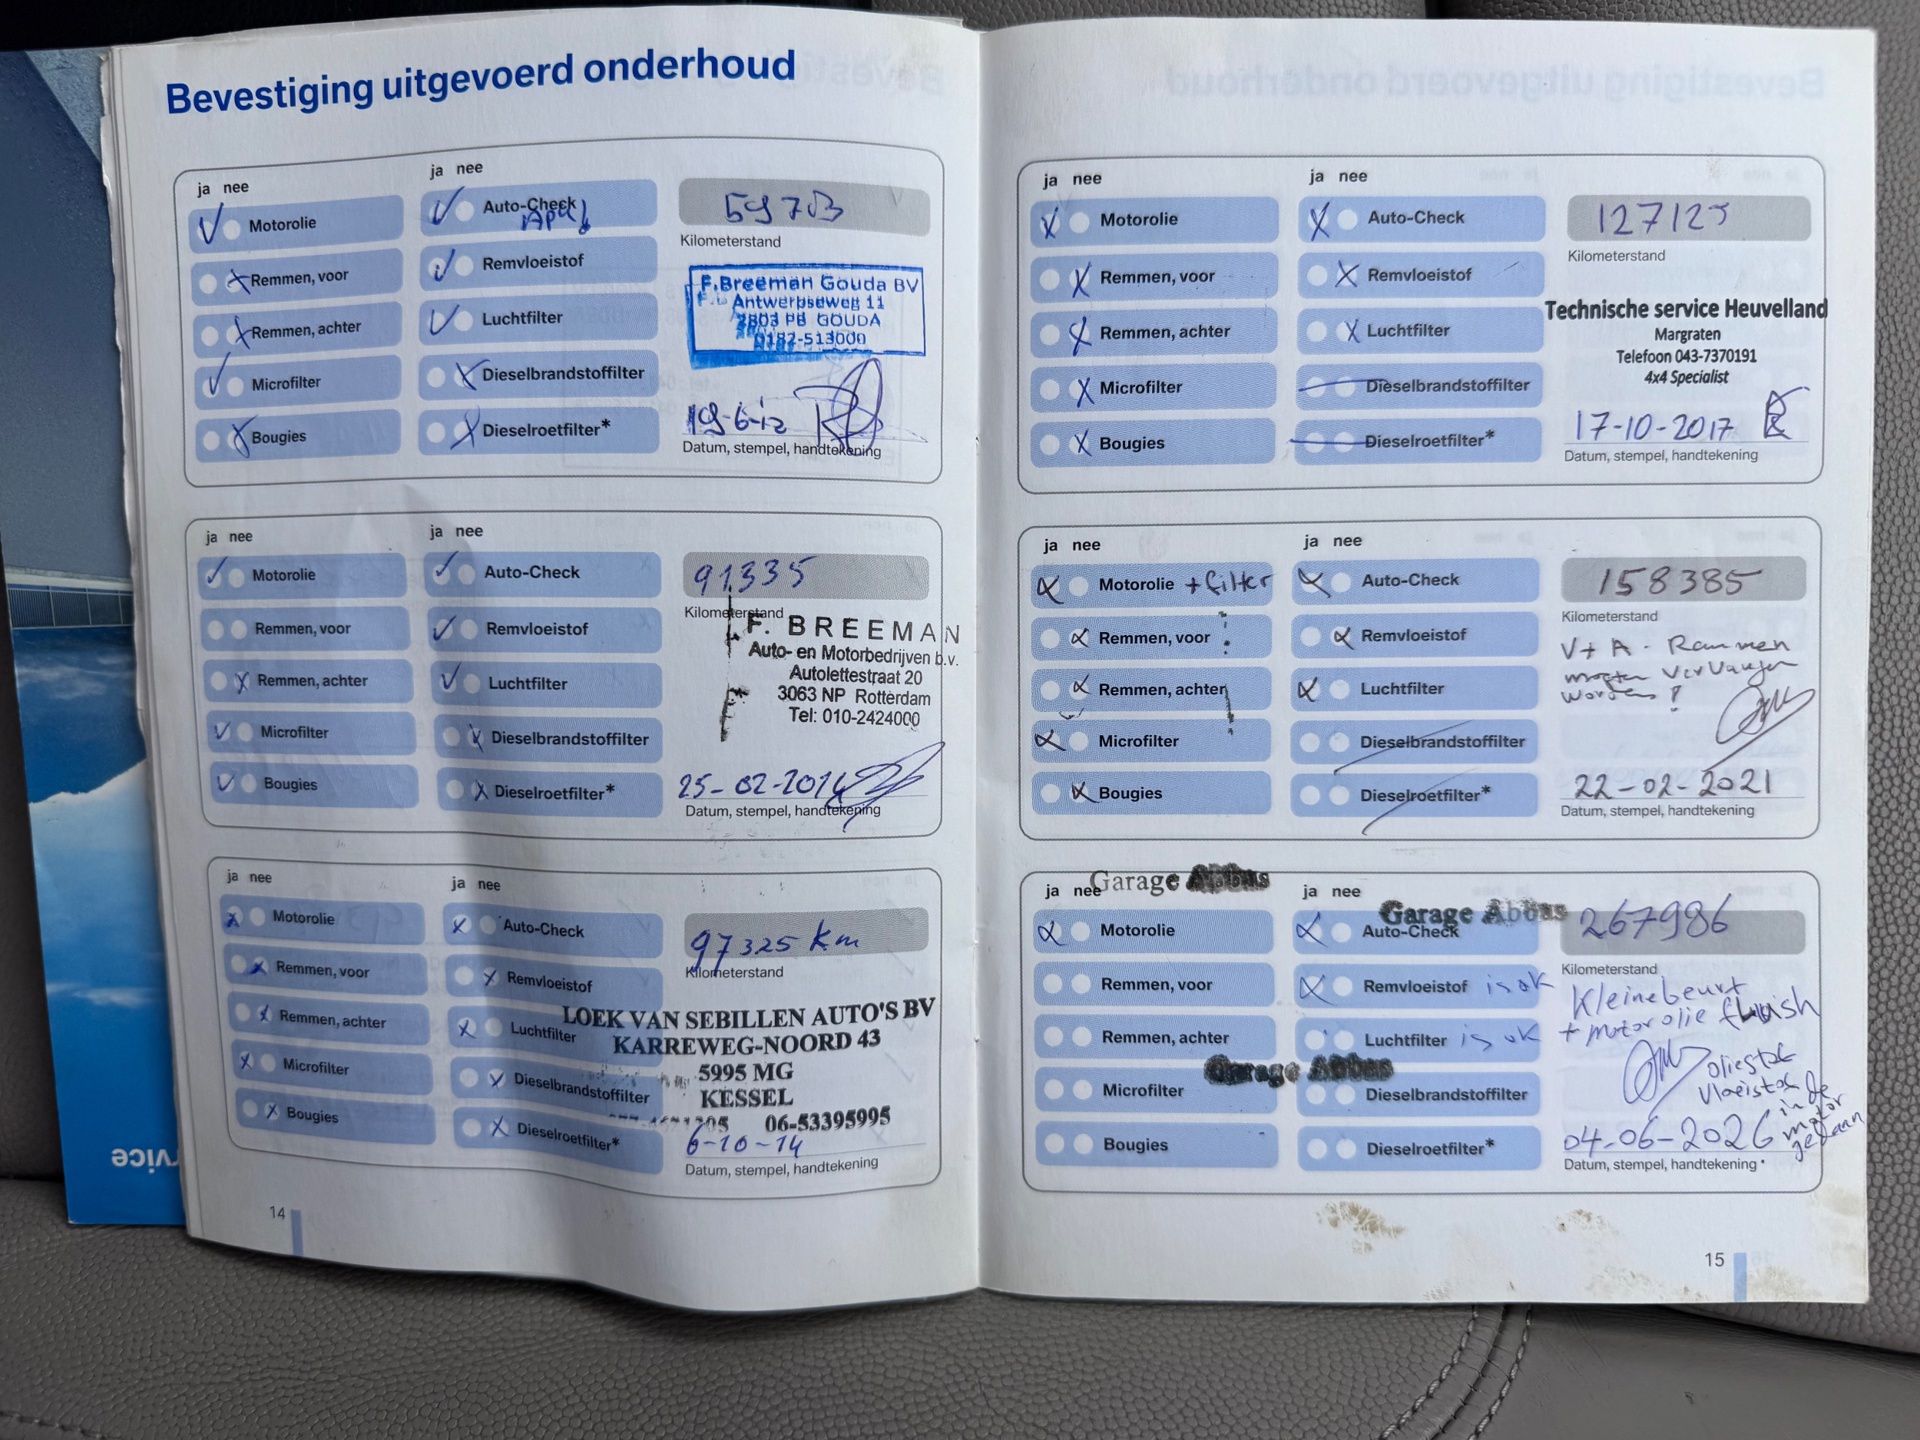 Bevestiging uitgevoerd onderhoud
ja nee
ja nee
Motorolie
Auto-Check
Remmen, voor
Remvloeistof
Remmen, achter
Luchtfilter
Microfilter
Dieselbrandstoffilter
Bougies
Dieselroetfilter*
Kilometerstand
F.Breeman Gouda BV
Antwerpseweg 11
2803 PB GOUDA
0182-513000
19-6-12
Datum, stempel, handtekening
ja nee
ja nee
Motorolie
Auto-Check
Remmen, voor
Remvloeistof
Remmen, achter
Luchtfilter
Microfilter
Dieselbrandstoffilter
Bougies
Dieselroetfilter*
91.335
Kilometerstand
F. BREEMAN
Auto- en Motorbedrijven b.v.
Autolettestraat 20
3063 NP Rotterdam
Tel: 010-2424000
25-02-2014
Datum, stempel, handtekening
ja nee
ja nee
Motorolie
Auto-Check
Remmen, voor
Remvloeistof
Remmen, achter
Luchtfilter
Microfilter
Dieselbrandstoffilter
Bougies
Dieselroetfilter*
97325 km
Kilometerstand
LOEK VAN SEBILLEN AUTO'S BV
KARREWEG-NOORD 43
5995 MG
KESSEL
06-53395995
6-10-14
Datum, stempel, handtekening
14
ja nee
ja nee
Motorolie
Auto-Check
Remmen, voor
Remvloeistof
Remmen, achter
Luchtfilter
Microfilter
Dieselbrandstoffilter
Bougies
Dieselroetfilter*
127125
Kilometerstand
Technische service Heuvelland
Margraten
Telefoon 043-7370191
4x4 Specialist
17-10-2017
Datum, stempel, handtekening
ja nee
ja nee
Motorolie + filter
Auto-Check
Remmen, voor
Remvloeistof
Remmen, achter
Luchtfilter
Microfilter
Dieselbrandstoffilter
Bougies
Dieselroetfilter*
158385
Kilometerstand
V+A - Remmen
moeten vervangen
worden!
22-02-2021
Datum, stempel, handtekening
Garage Abbas
ja nee
ja nee
Garage Abbas
Motorolie
Auto-Check
Remmen, voor
Remvloeistof is ok
Remmen, achter
Luchtfilter is ok
Garage Abbas
Microfilter
Dieselbrandstoffilter
Bougies
Dieselroetfilter*
267986
Kilometerstand
Kleinebeurt
+ motorolie flush
oliestok
vloeistof
in de
motor
gedaan
04-06-2026
Datum, stempel, handtekening
15